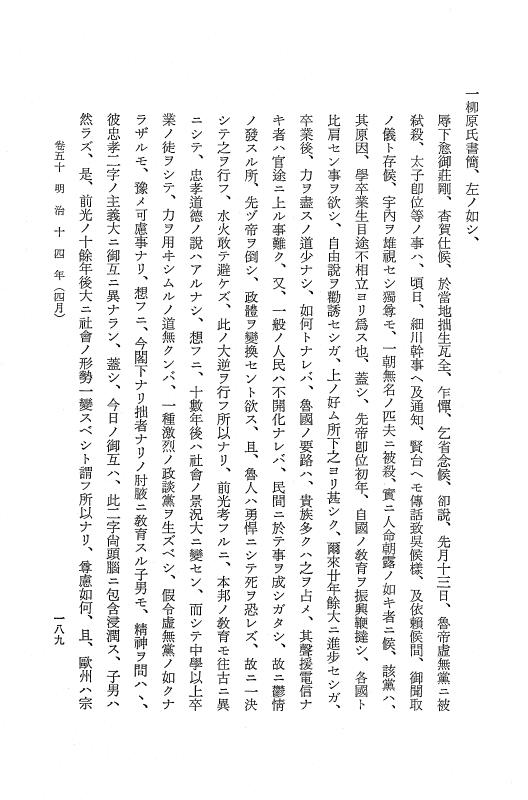 一柳原氏書簡、左ノ如シ、
辱下愈御莊剛、杳賀仕候、於當地拙生瓦全、乍憚、乞省念候、卻說、先月十三日、魯帝虛無黨ニ被
弑殺、太子卽位等ノ事ハ、頃日、細川幹事ヘ及通知、賢台ヘモ傳話致吳候樣、及依賴候間、御聞取
ノ儀ト存候、宇內ヲ雄視セシ獨尊モ、一朝無名ノ匹夫ニ被殺、實ニ人命朝露ノ如キ者ニ候、該黨ハ、
其原因、學卒業生目途不相立ヨリ爲ス也、蓋シ、先帝卽位初年、自國ノ敎育ヲ振興鞭撻シ、各國ト
比肩セン事ヲ欲シ、自由說ヲ勸誘セシガ、上ノ好ム所下之ヨリ甚シク、爾來廿年餘大ニ進步セシガ、
卒業後、力ヲ盡スノ道少ナシ、如何トナレバ、魯國ノ要路ハ、貴族多クハ之ヲ占メ、其聲援電信ナ
キ者ハ官途ニ上ル事難ク、又、一般ノ人民ハ不開化ナレバ、民間ニ於テ事ヲ成シガタシ、故ニ鬱情
ノ發スル所、先ヅ帝ヲ倒シ、政體ヲ變換セント欲ス、且、魯人ハ勇悍ニシテ死ヲ恐レズ、故ニ一決
シテ之ヲ行フ、水火敢テ避ケズ、此ノ大逆ヲ行フ所以ナリ、前光考フルニ、本邦ノ敎育モ往古ニ異
ニシテ、忠孝道德ノ說ハアルナシ、想フニ、十數年後ハ社會ノ景況大ニ變セン、而シテ中學以上卒
業ノ徒ヲシテ、力ヲ用ヰシムルノ道無クンバ、一種激烈ノ政談黨ヲ生ズベシ、假令虛無黨ノ如クナ
ラザルモ、豫メ可慮事ナリ、想フニ、今閣下ナリ拙者ナリノ肘腋ニ敎育スル子男モ、精神ヲ問ハヽ、
彼忠孝二字ノ主義大ニ御互ニ異ナラン、蓋シ、今日ノ御互ハ、此二字尙頭腦ニ包含浸潤ス、子男ハ
然ラズ、是、前光ノ十餘年後大ニ社會ノ形勢一變スベシト謂フ所以ナリ、尊慮如何、且、歐州ハ宗
卷五十 明治十四年（四月）
一八九